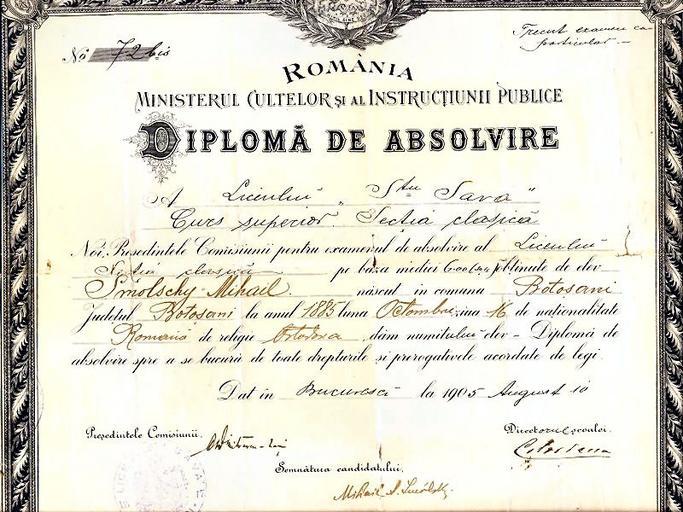 No 72 bis
Trecut examen ca
particular –
ROMÂNIA
MINISTERUL CULTELOR ȘI AL INSTRUCȚIUNII PUBLICE
DIPLOMĂ DE ABSOLVIRE
A Liceului „Sfu Sava"
Curs superior. Secția clasică
Noi, Președintele Comisiunii pentru examenul de absolvire al Liceului
pe baza mediei obținute de elev
Smolschy Mihail născut în comuna Botosani
județul Botosani la anul 1885 luna Octombrie, ziua 16 de naționalitate
Romană de religie Ortodoxa, dăm numitului elev – Diplomă de
absolvire spre a se bucura de toate drepturile și prerogativele acordate de legi.
Dat în Bucuresci la 1905 August 10
Președintele Comisiunii,
Directorul școalei,
Semnătura candidatului,